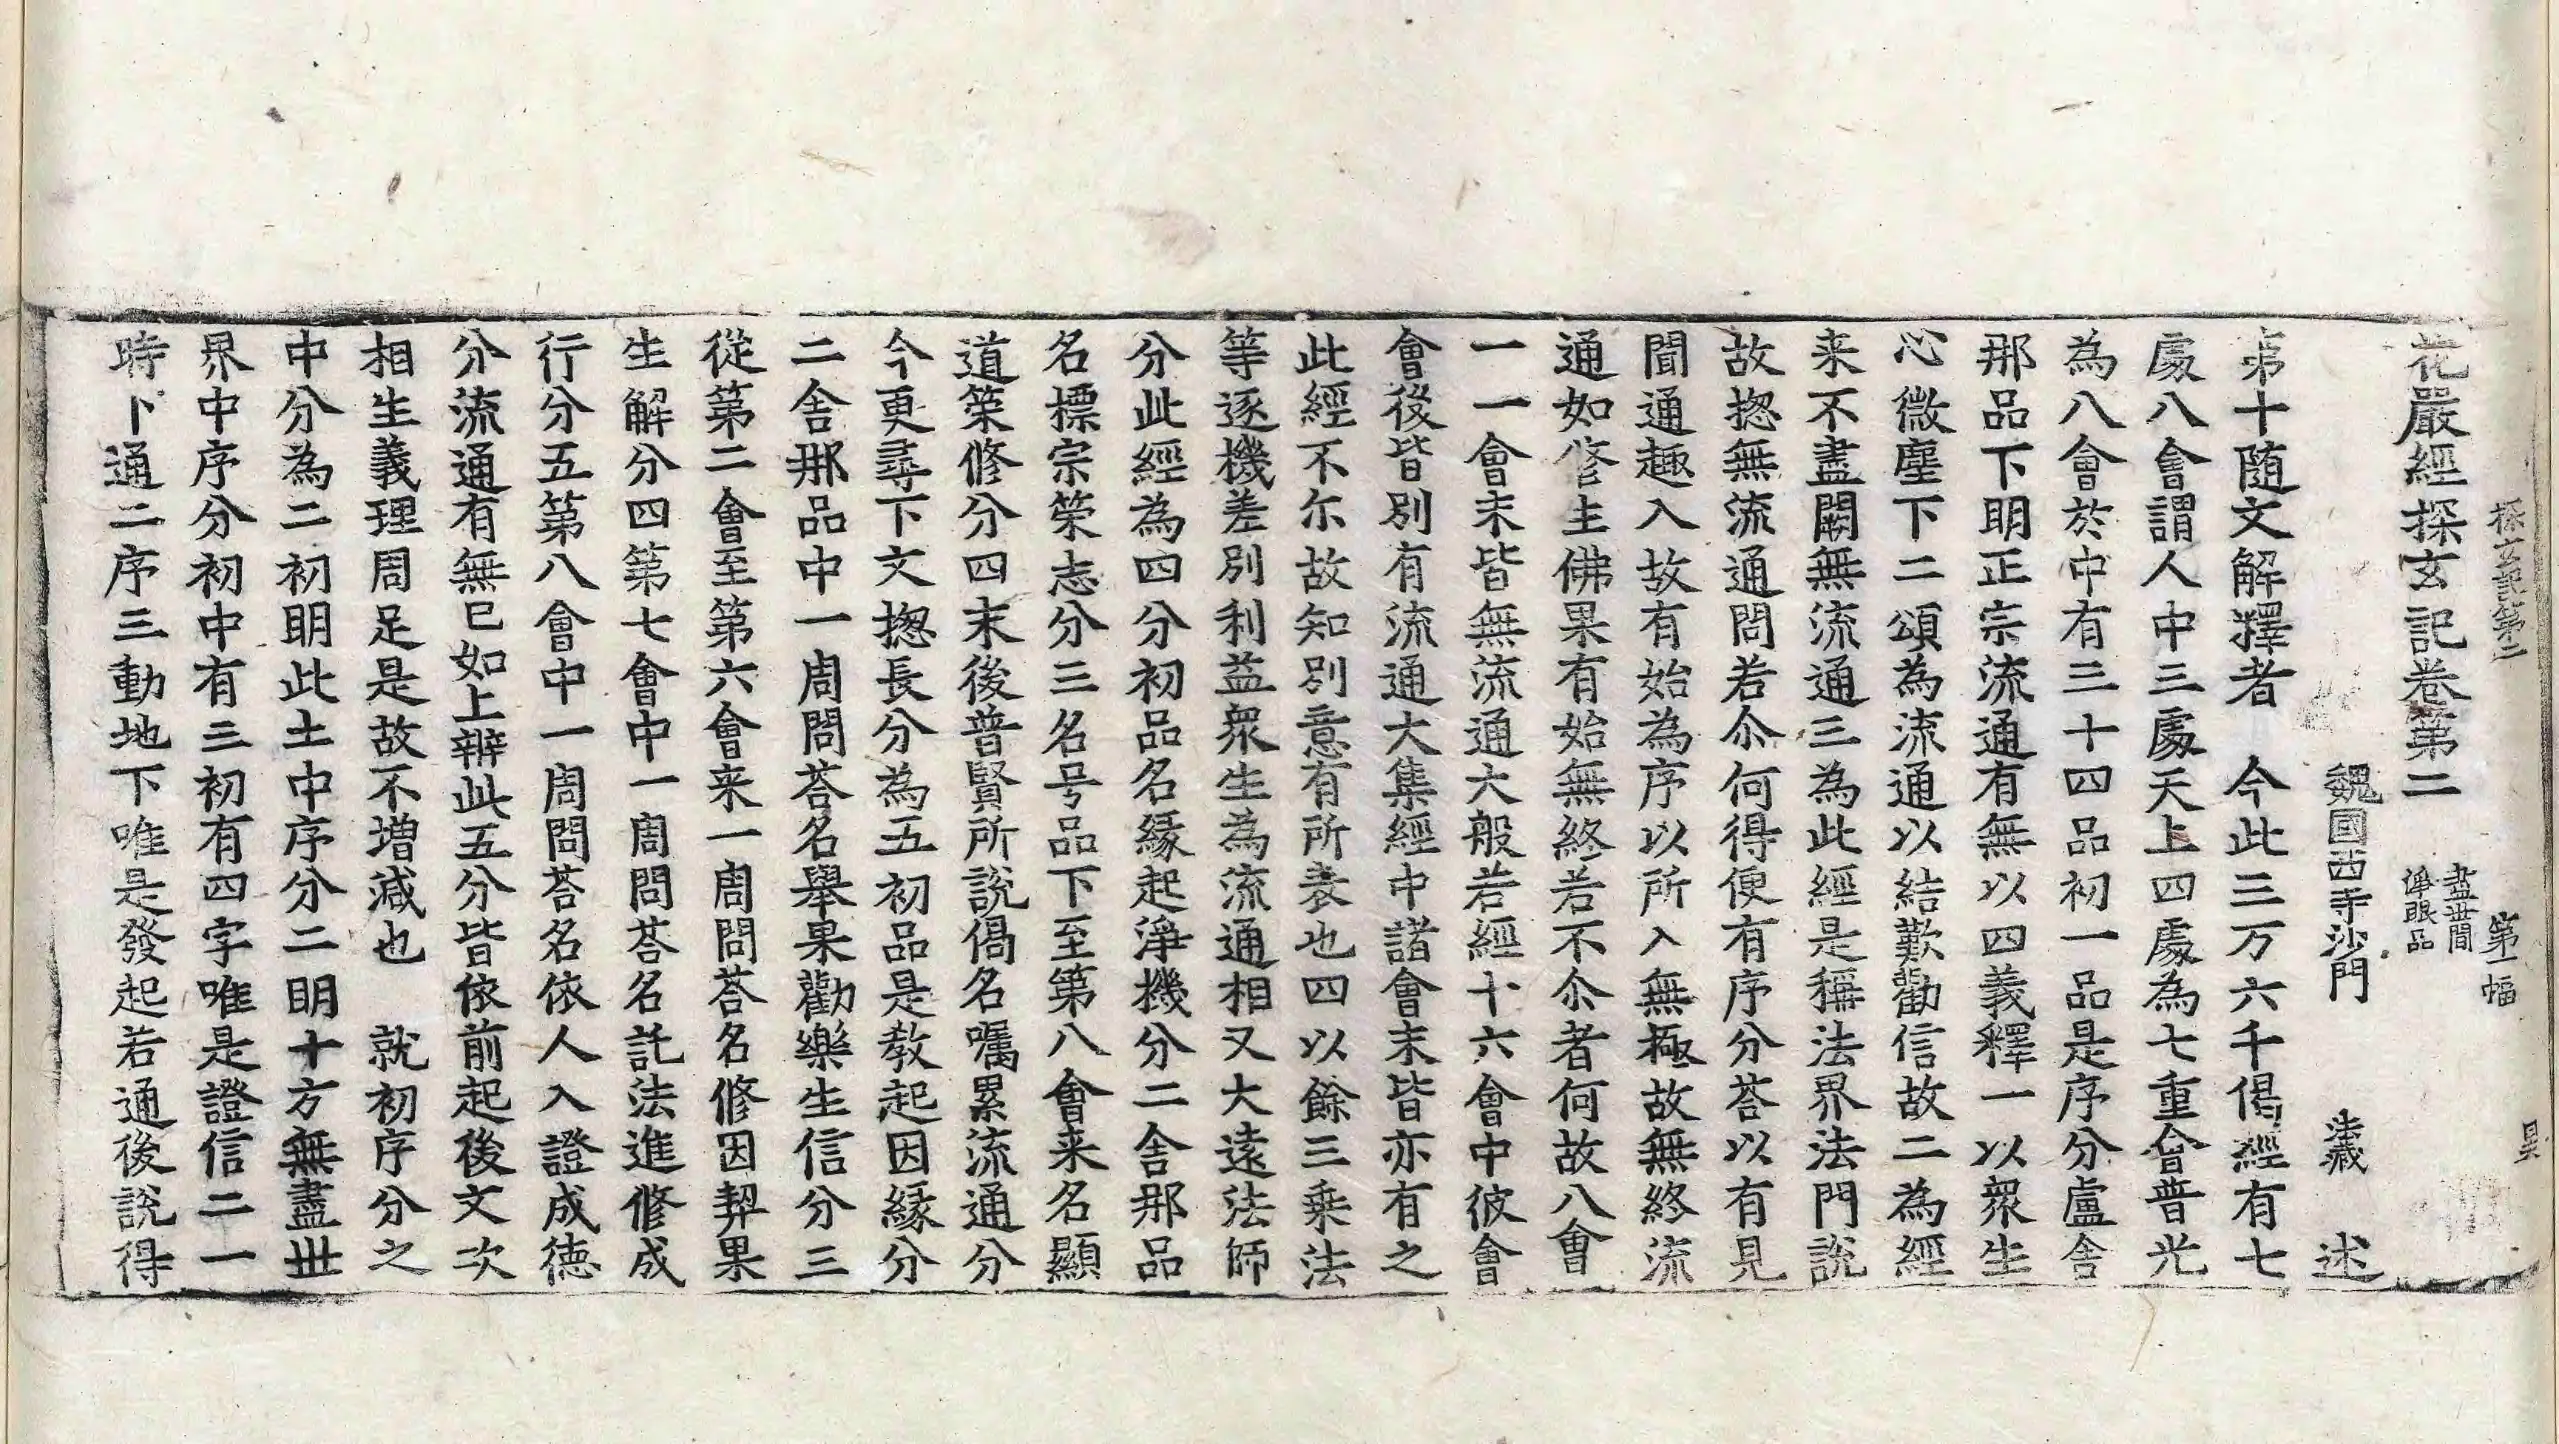 探玄記第二 第一幅 昊
花嚴經探玄記卷第二 盡世間
淨眼品
魏國西寺沙門 法藏 述
第十随文解釋者 今此三万六千偈經有七
處八會謂人中三處天上四處為七重會普光
為八會於中有三十四品初一品是序分盧舍
那品下明正宗流通有無以四義釋一以衆生
心微塵下二頌為流通以結歎勸信故二為經
来不盡闕無流通三為此經是稱法界法門說
故揔無流通問若尒何得便有序分荅以有見
聞通趣入故有始為序以所入無極故無終流
通如修生佛果有始無終若不尒者何故八會
一一會末皆無流通大般若經十六會中彼會
會後皆別有流通大集經中諸會末皆亦有之
此經不尓故知別意有所表也四以餘三乗法
等逐機差別利益衆生為流通相又大遠法師
分此經為四分初品名縁起淨機分二舍那品
名標宗榮志分三名号品下至第八會来名顯
道榮修分四末後普賢所說偈名囑累流通分
今更尋下文揔長分為五初品是教起因縁分
二舍那品中一周問荅名舉果勸樂生信分三
從第二會至第六會来一周問荅名修因契果
生解分四第七會中一周問荅名託法進修成
行分五第八會中一周問荅名依人入證成徳
分流通有無已如上辨此五分皆依前起後文次
相生義理周足是故不増減也 就初序分之
中分為二初明此土中序分二明十方無盡丗
界中序分初中有三初有四字唯是證信二一
時下通二序三動地下唯是發起若通後說得